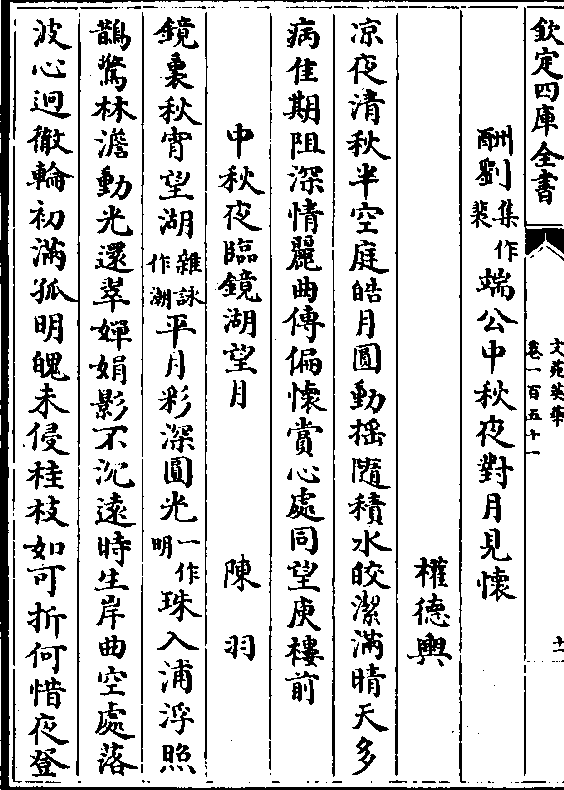 欽定四庫全書
文苑英華
卷一百五十一
十一
酬劉集作裴端公中秋夜對月見懷
權德輿
凉夜清秋半空庭皓月圓動揺隨積水皎潔滿晴天多
病佳期阻深情麗曲傳偏懷賞心處同望庾樓前
中秋夜臨鏡湖望月
陳羽
鏡裏秋宵望湖雜詠作潮平月彩深圓光一作明珠入浦浮照
鵲驚林澹動光還翠嬋娟影不沉遠時生岸曲空處落
波心迥徹輪初滿孤明魄未侵桂枝如可折何惜夜登